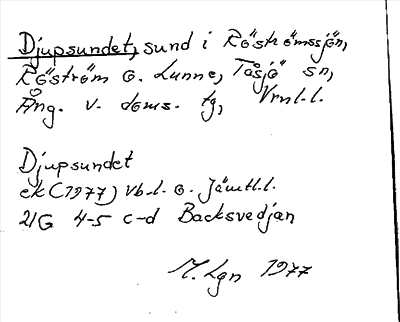 Djupsundet, sund i Röströmssjön,
Röström o. Lunne, Tåsjö sn,
Ång. v. doms. tg, Vrml.l.
Djupsundet
ek (1977) Vb.l. o. Jämtl.l.
21G 4-5 c-d Backsvedjan
M. Lgn 1977